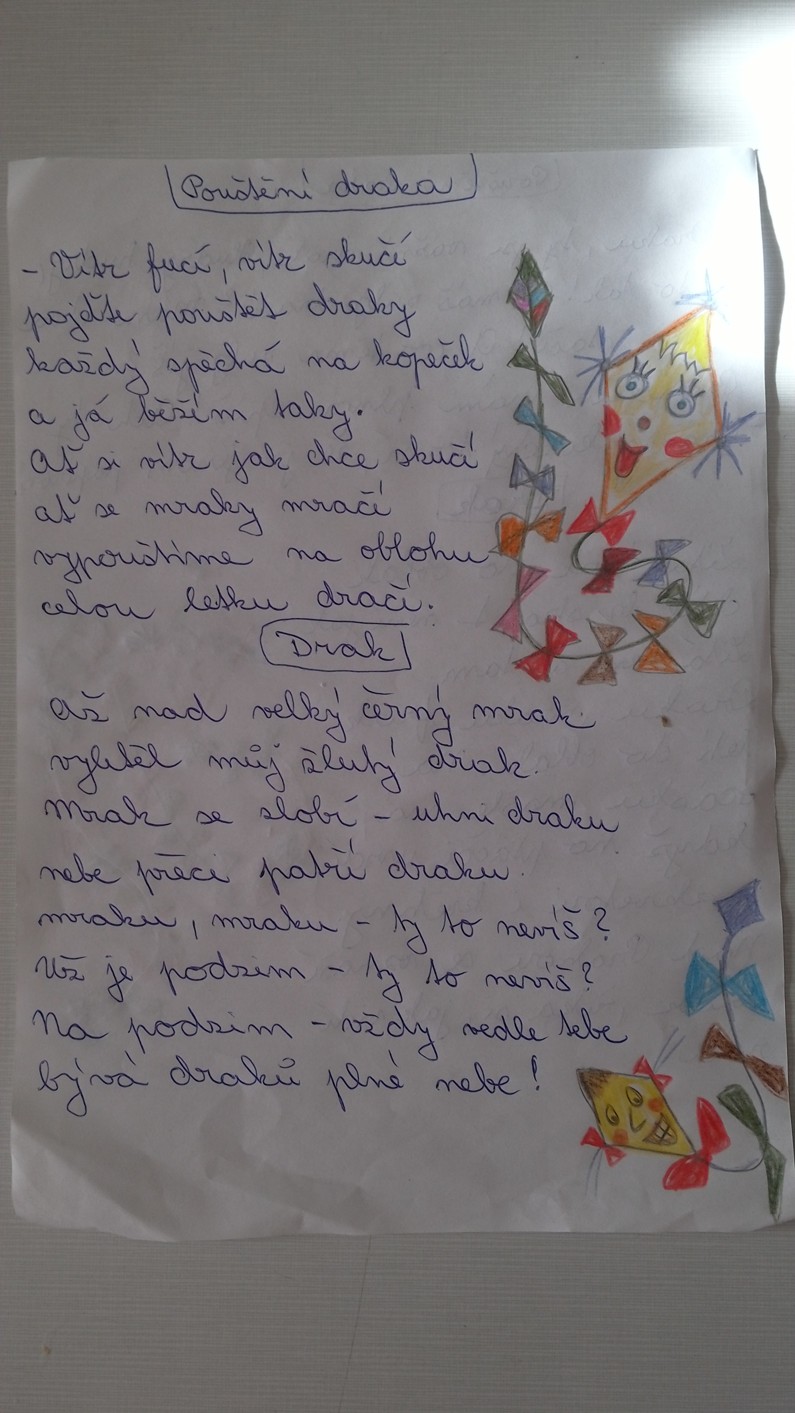 Pouštění draka
- Vítr fučí, vítr skučí
pojďte pouštět draky
každý spěchá na kopeček
a já běžím taky.
Ať si vítr jak chce skučí
ať se mraky mračí
vypouštíme na oblohu
celou letku dračí.
Drak
Až nad velký černý mrak
vyletěl můj žlutý drak.
Mrak se zlobí - uhni draku
nebe přeci patří draku.
mraku, mraku - ty to nevíš?
Už je podzim - ty to nevíš?
Na podzim - vždy vedle tebe
bývá draků plné nebe!